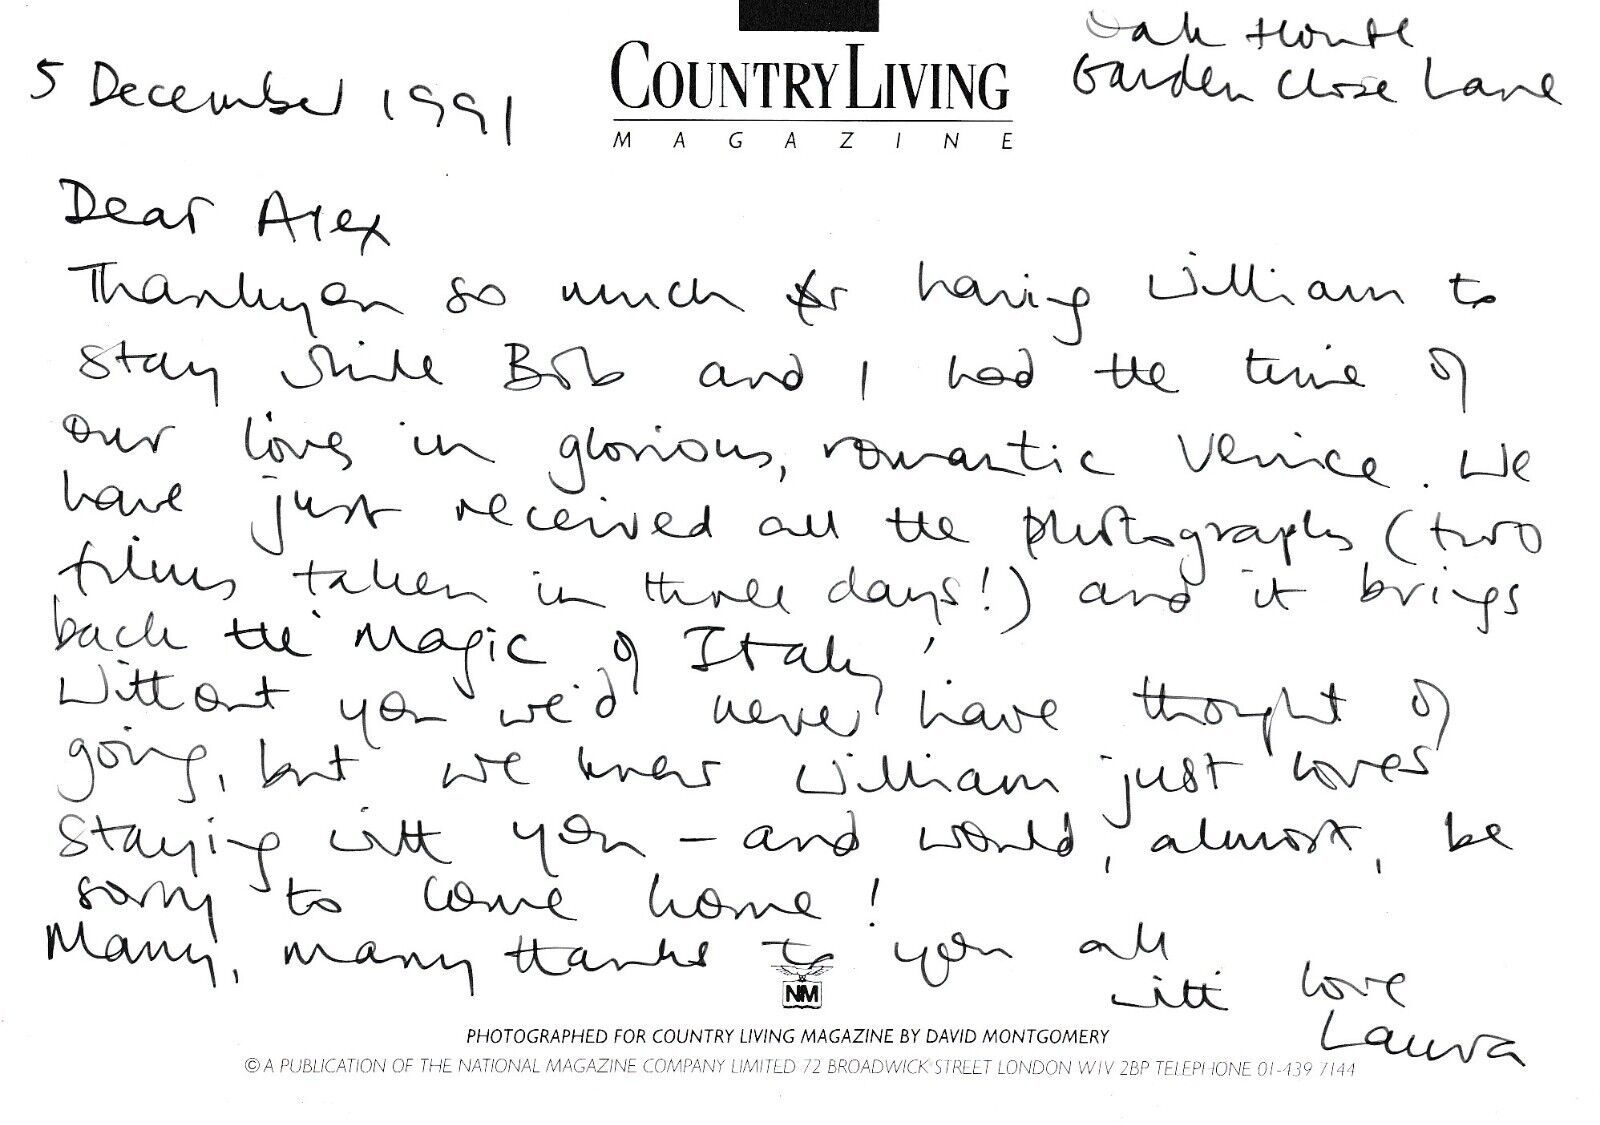 5 December 1991
COUNTRY LIVING
MAGAZINE
Oak House
Garden Close Lane
Dear Alex
Thankyou so much for having William to
stay while Bob and I had the time of
our lives in glorious, romantic Venice. We
have just received all the photographs (two
films taken in three days!) and it brings
back the magic of Italy!
Without you we'd never have thought of
going, but we knew William just loves
staying with you – and would, almost, be
sorry to come home!
Many, many thanks to you all
with love
Laura
NM
PHOTOGRAPHED FOR COUNTRY LIVING MAGAZINE BY DAVID MONTGOMERY
© A PUBLICATION OF THE NATIONAL MAGAZINE COMPANY LIMITED 72 BROADWICK STREET LONDON W1V 2BP TELEPHONE 01-439 7144